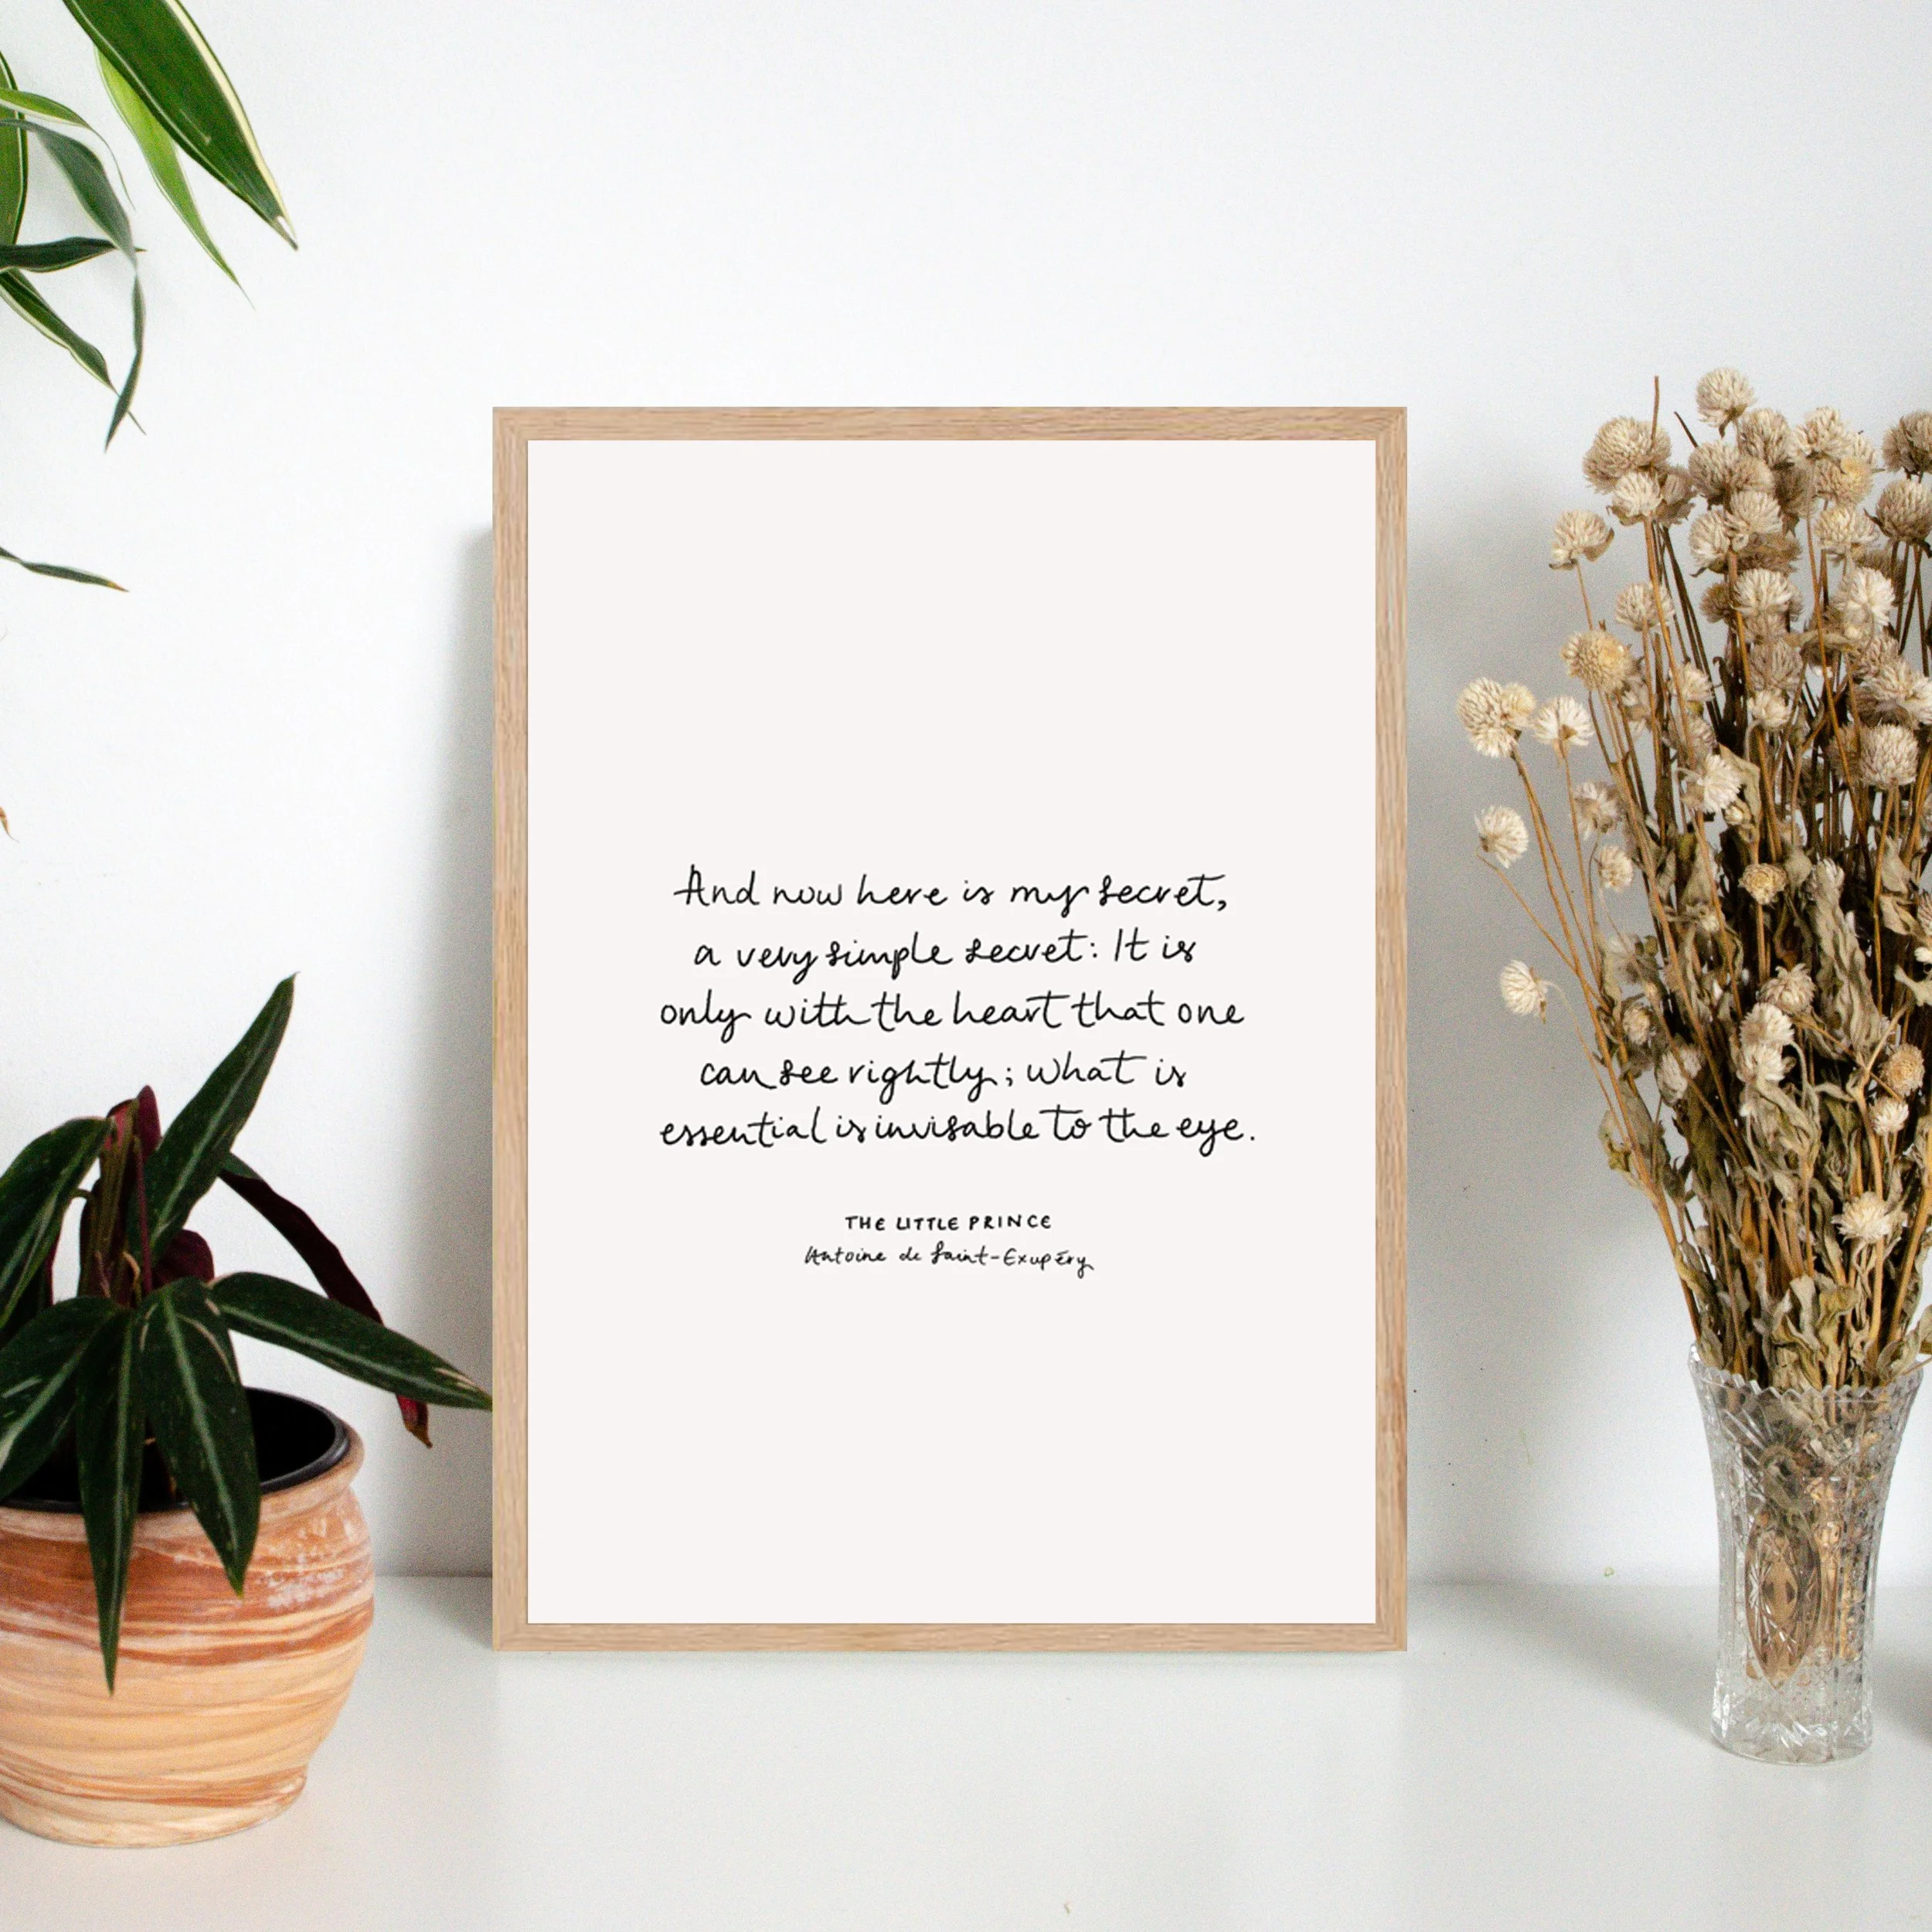 And now here is my secret,
a very simple secret: It is
only with the heart that one
can see rightly; what is
essential is invisable to the eye.
THE LITTLE PRINCE
Antoine de Saint-Exupéry